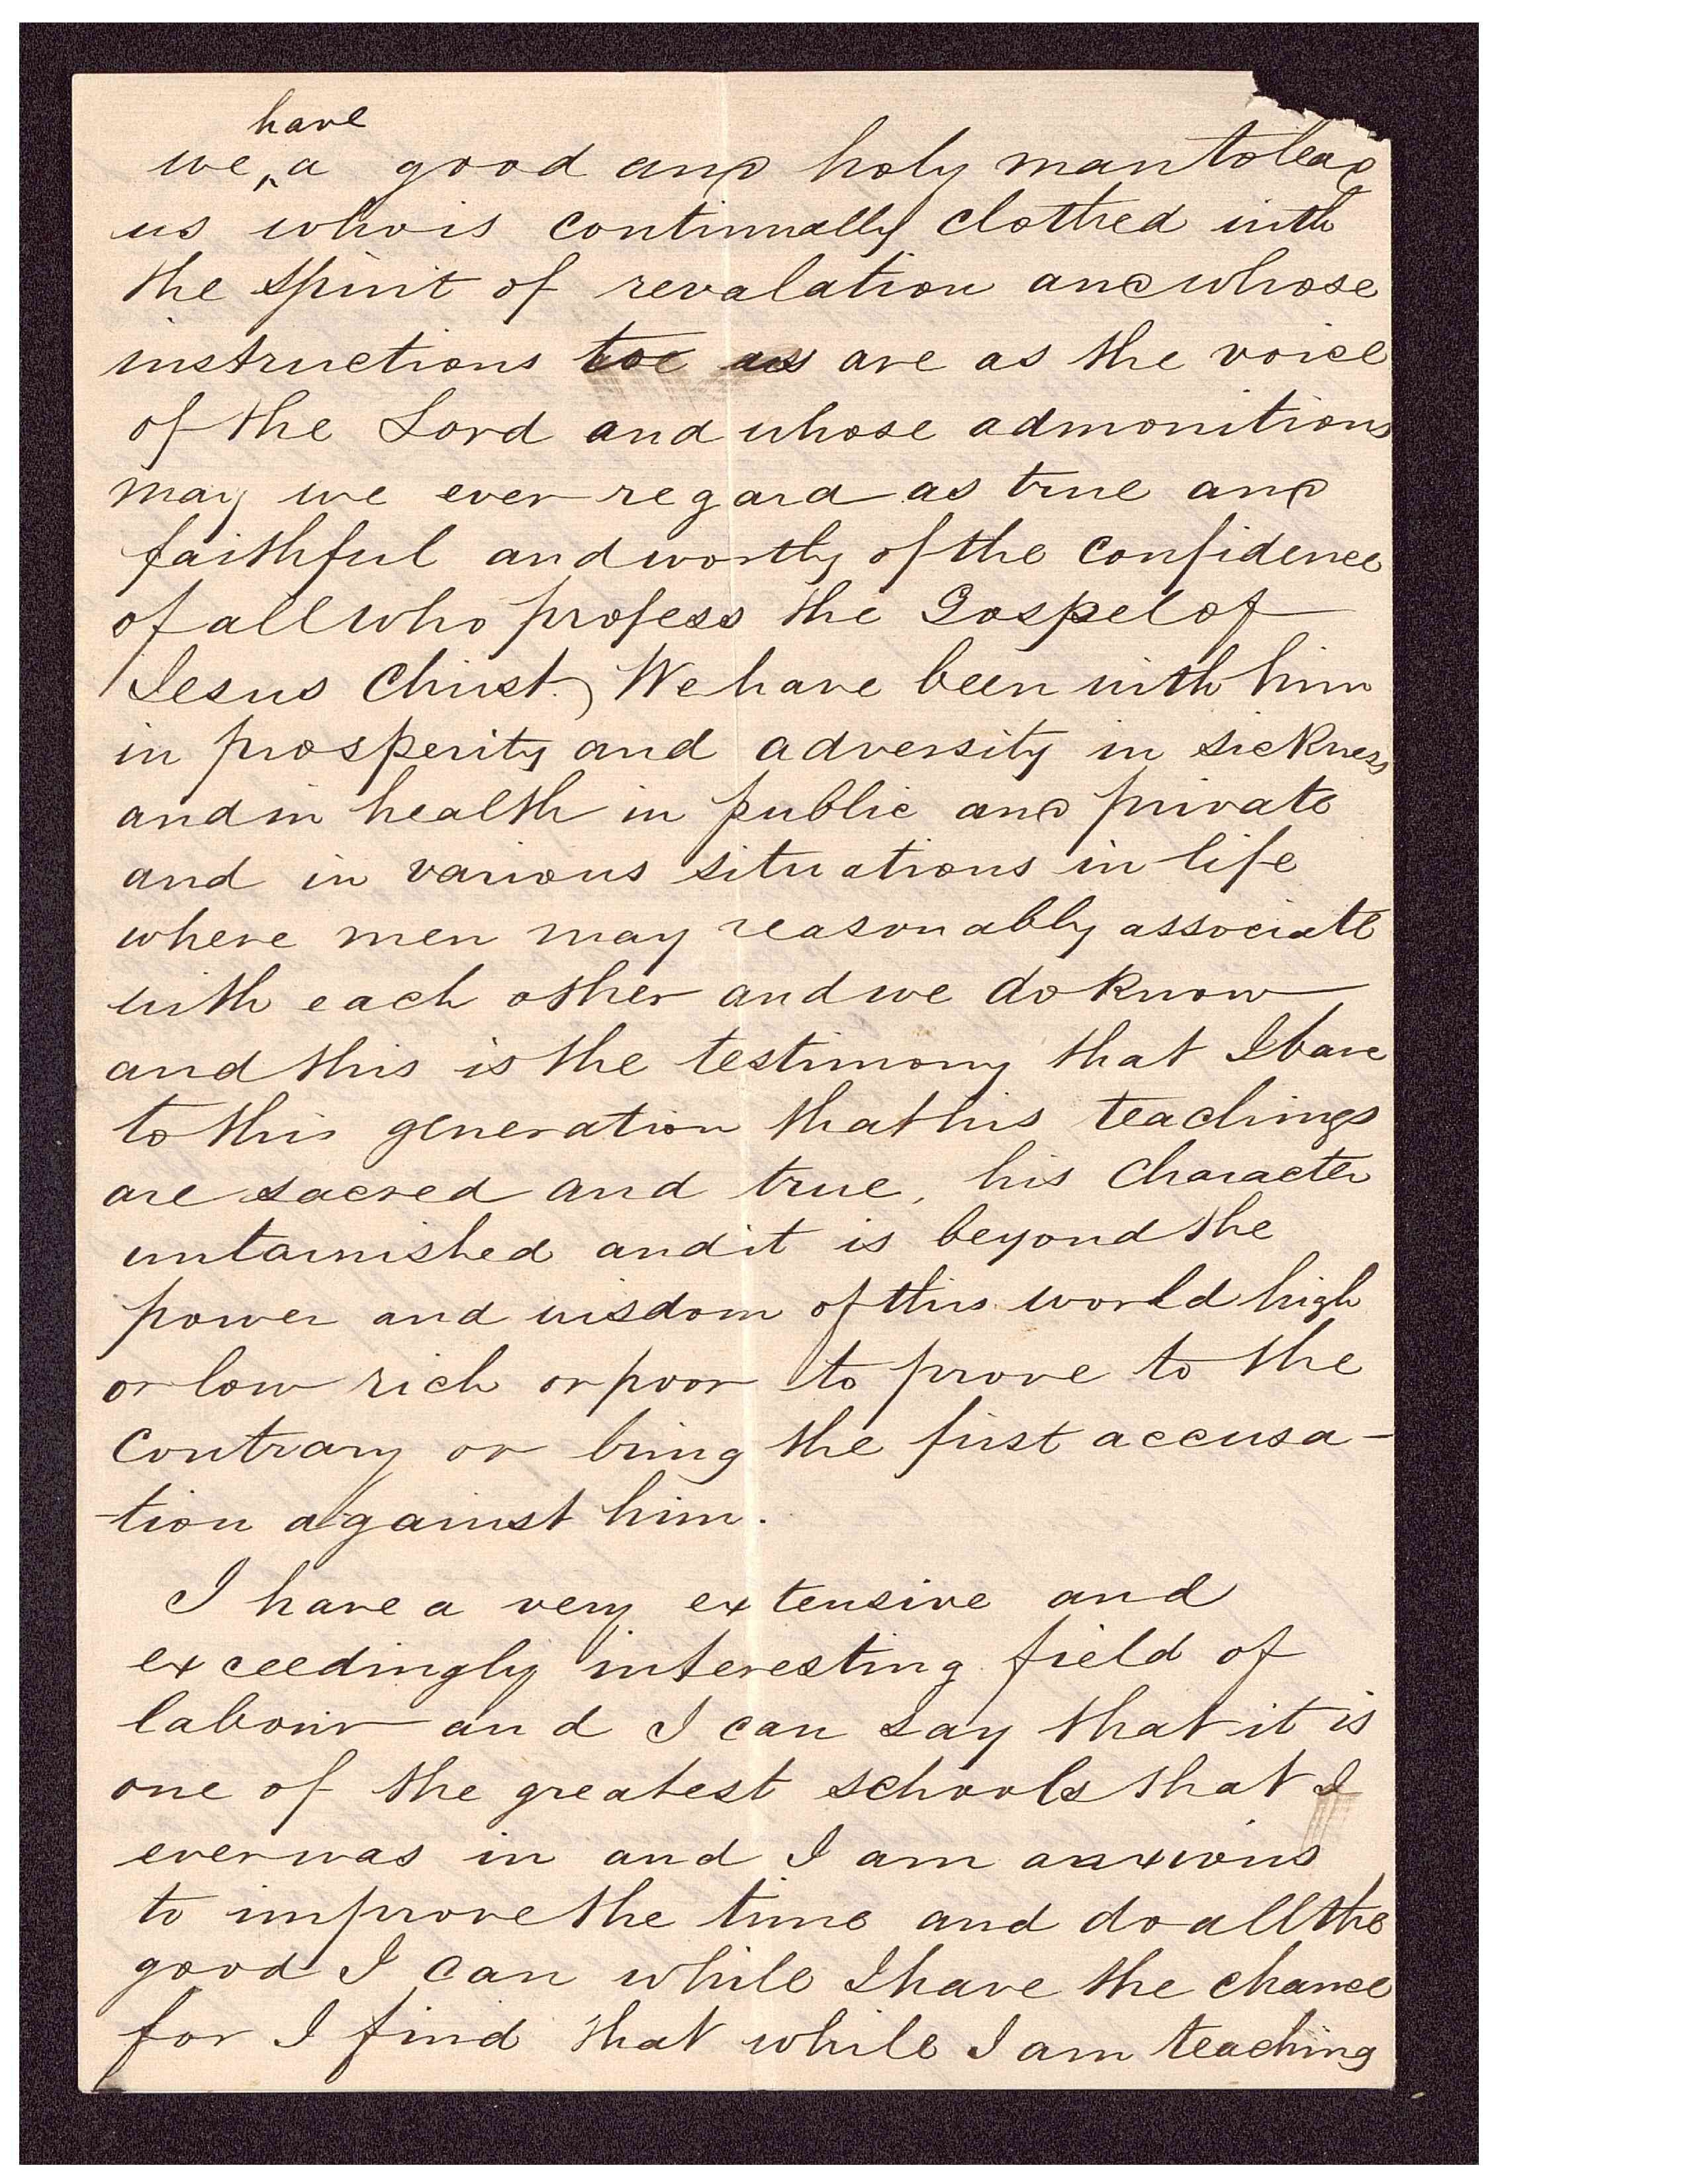 have
we ‸ a good and holy man to lead
us who is continually clothed with
the spirit of revalation and whose
instructions to us are as the voice
of the Lord and whose admonitions
may we ever regard as true and
faithful and worthy of the confidence
of all who profess the Gospel of
Jesus Christ.) We have been with him
in prosperity and adversity in sickness
and in health in public and private
and in various situations in life
where men may reasonably associate
with each other and we do know
and this is the testimony that I bare
to this generation that his teachings
are sacred and true, his character
untarnished and it is beyond the
power and wisdom of this world high
or low rich or poor to prove to the
contrary or bring the first accusa-
-tion against him.
I have a very extensive and
exceedingly interesting field of
labour and I can say that it is
one of the greatest schools that I
ever was in and I am anxious
to improve the time and do all the
good I can while I have the chance
for I find that while I am teaching